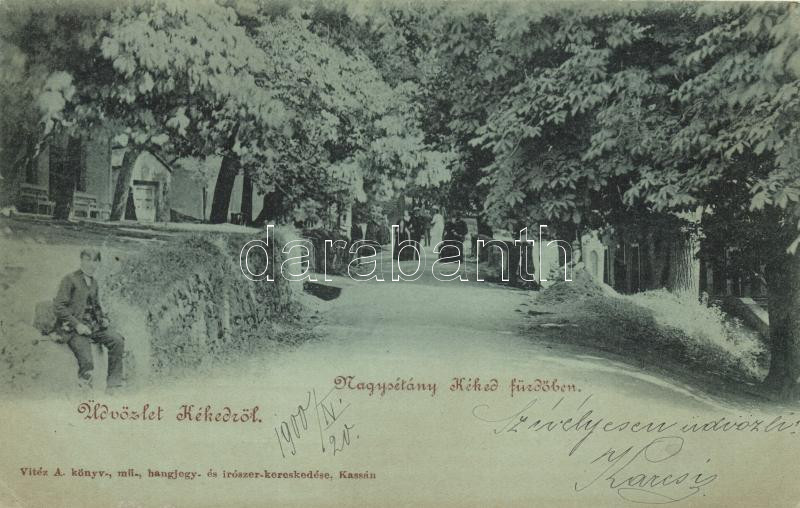 darabanth
Nagysétány Kéked fürdőben.
Üdvözlet Kékedről.
1900/IV. 20.
Szívélyesen üdvözli:
Karcsi
Vitéz A. könyv-, mű-, hangjegy- és irószer-kereskedése, Kassán